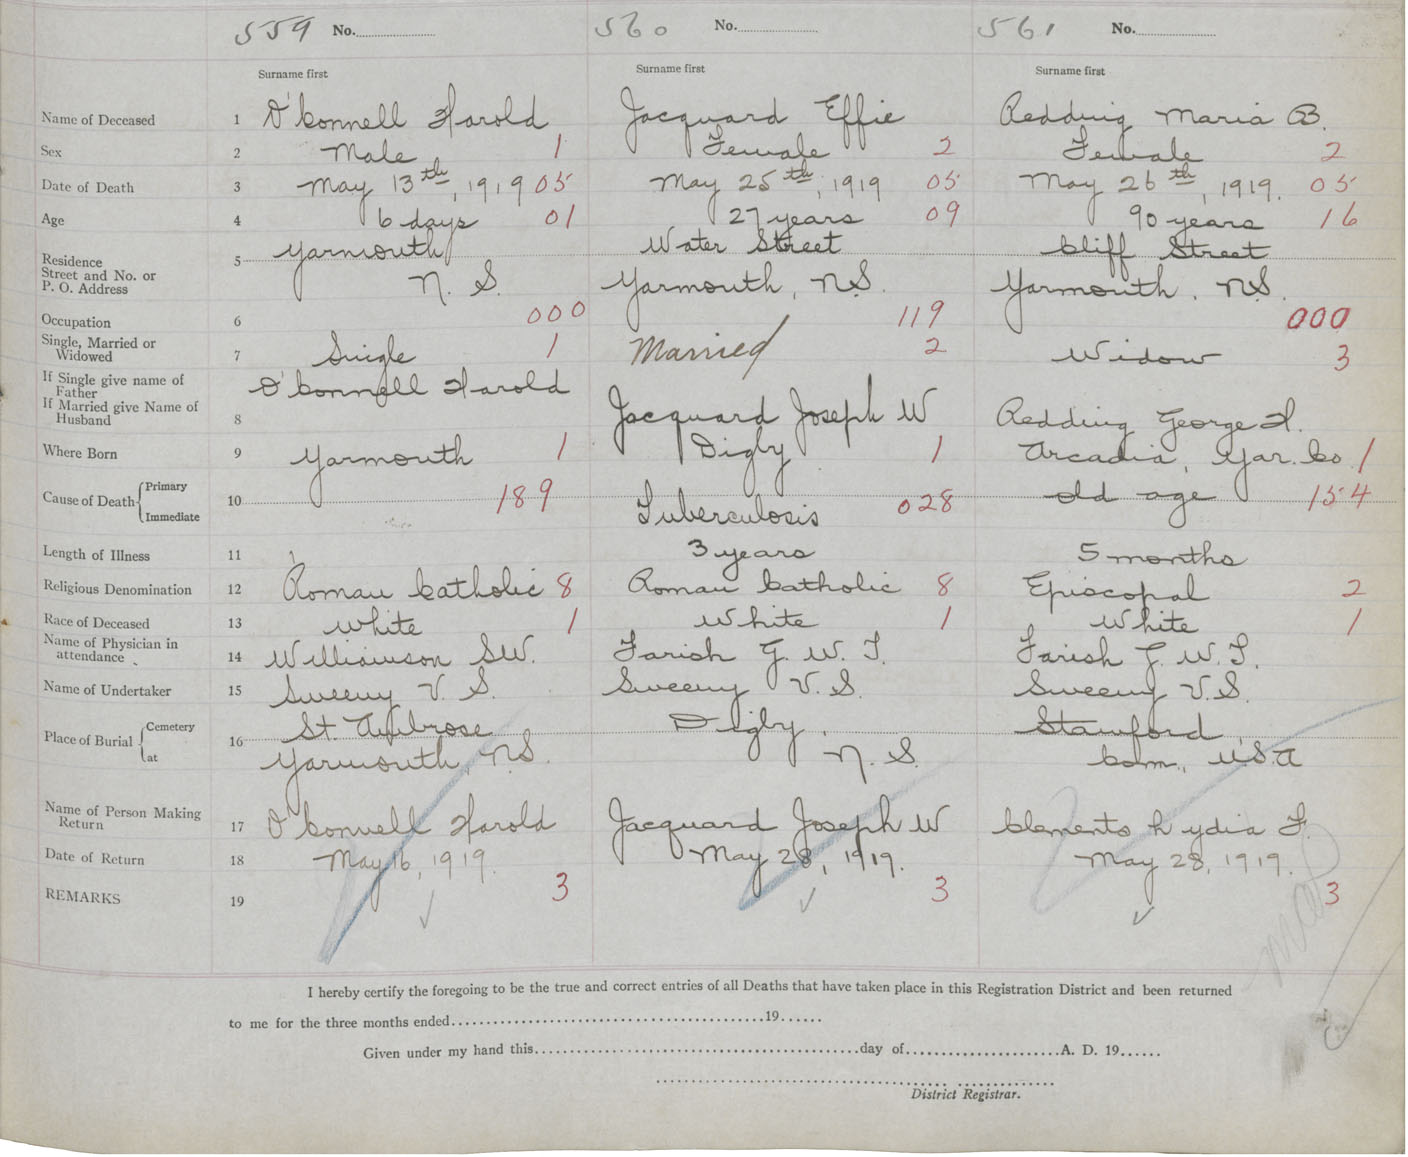 559 No. 560 No. 561 No.
Surname first Surname first Surname first
Name of Deceased 1 O'Connell Harold Jacquard Effie Redding Maria B.
Sex 2 Male 1 Female 2 Female 2
Date of Death 3 May 13th, 1919 05 May 25th, 1919 05 May 26th, 1919. 05
Age 4 6 days 01 27 years 09 90 years 16
Residence
Street and No. or
P. O. Address
5 Yarmouth Water Street Cliff Street
N. S. Yarmouth, N.S. Yarmouth, N.S.
Occupation 6 000 119 000
Single, Married or
Widowed 7 Single 1 Married 2 Widow 3
If Single give name of
Father
If Married give Name of
Husband
8 O'Connell Harold Jacquard Joseph W Redding George H.
Where Born 9 Yarmouth 1 Digby 1 Arcadia, Yar. Co. 1
Cause of Death { Primary Immediate 10 189 Tuberculosis 028 old age 154
Length of Illness 11 3 years 5 months
Religious Denomination 12 Roman Catholic 8 Roman Catholic 8 Episcopal 2
Race of Deceased 13 White 1 White 1 White 1
Name of Physician in
attendance 14 Williamson S.W. Farish G. W. T. Farish G. W. T.
Name of Undertaker 15 Sweeny V. S. Sweeny V. S. Sweeny V. S.
Place of Burial { Cemetery at 16 St. Ambrose Digby, Stamford,
Yarmouth, N.S. N. S. Conn., U.S.A
Name of Person Making
Return 17 O'Connell Harold Jacquard Joseph W Clements Lydia F.
Date of Return 18 May 16, 1919. May 28, 1919. May 28, 1919.
REMARKS 19 3 3 3
I hereby certify the foregoing to be the true and correct entries of all Deaths that have taken place in this Registration District and been returned
to me for the three months ended 19
Given under my hand this day of A. D. 19
District Registrar.